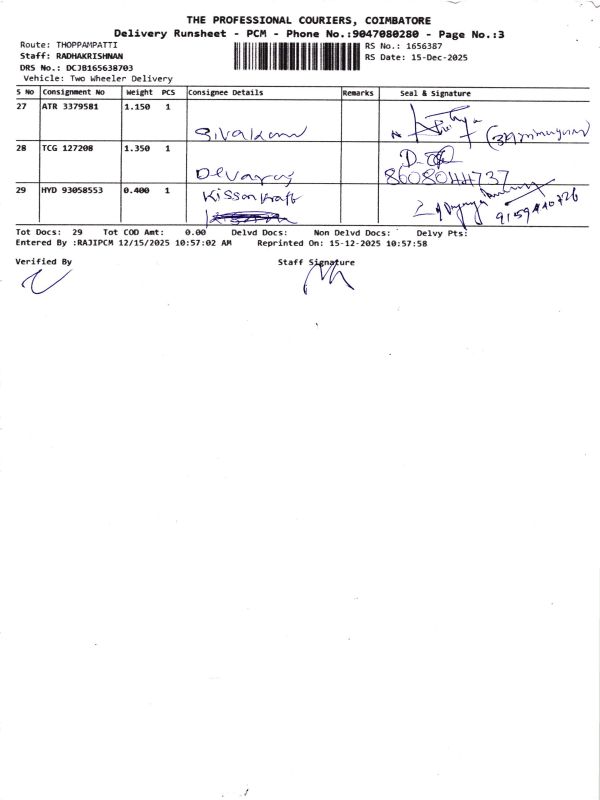 THE PROFESSIONAL COURIERS, COIMBATORE
Delivery Runsheet - PCM - Phone No.:9047080280 - Page No.:3
Route: THOPPAMPATTI RS No.: 1656387
Staff: RADHAKRISHNAN RS Date: 15-Dec-2025
DRS No.: DCJB165638703
Vehicle: Two Wheeler Delivery
S No Consignment No Weight PCS Consignee Details Remarks Seal & Signature
27 ATR 3379581 1.150 1
Sivakami
28 TCG 127208 1.350 1
Devaraj 8608044737
29 HYD 93058553 0.400 1 Kissan kraft
Tot Docs: 29 Tot COD Amt: 0.00 Delvd Docs: Non Delvd Docs: Delvy Pts:
Entered By :RAJIPCM 12/15/2025 10:57:02 AM Reprinted On: 15-12-2025 10:57:58
Verified By Staff Signature